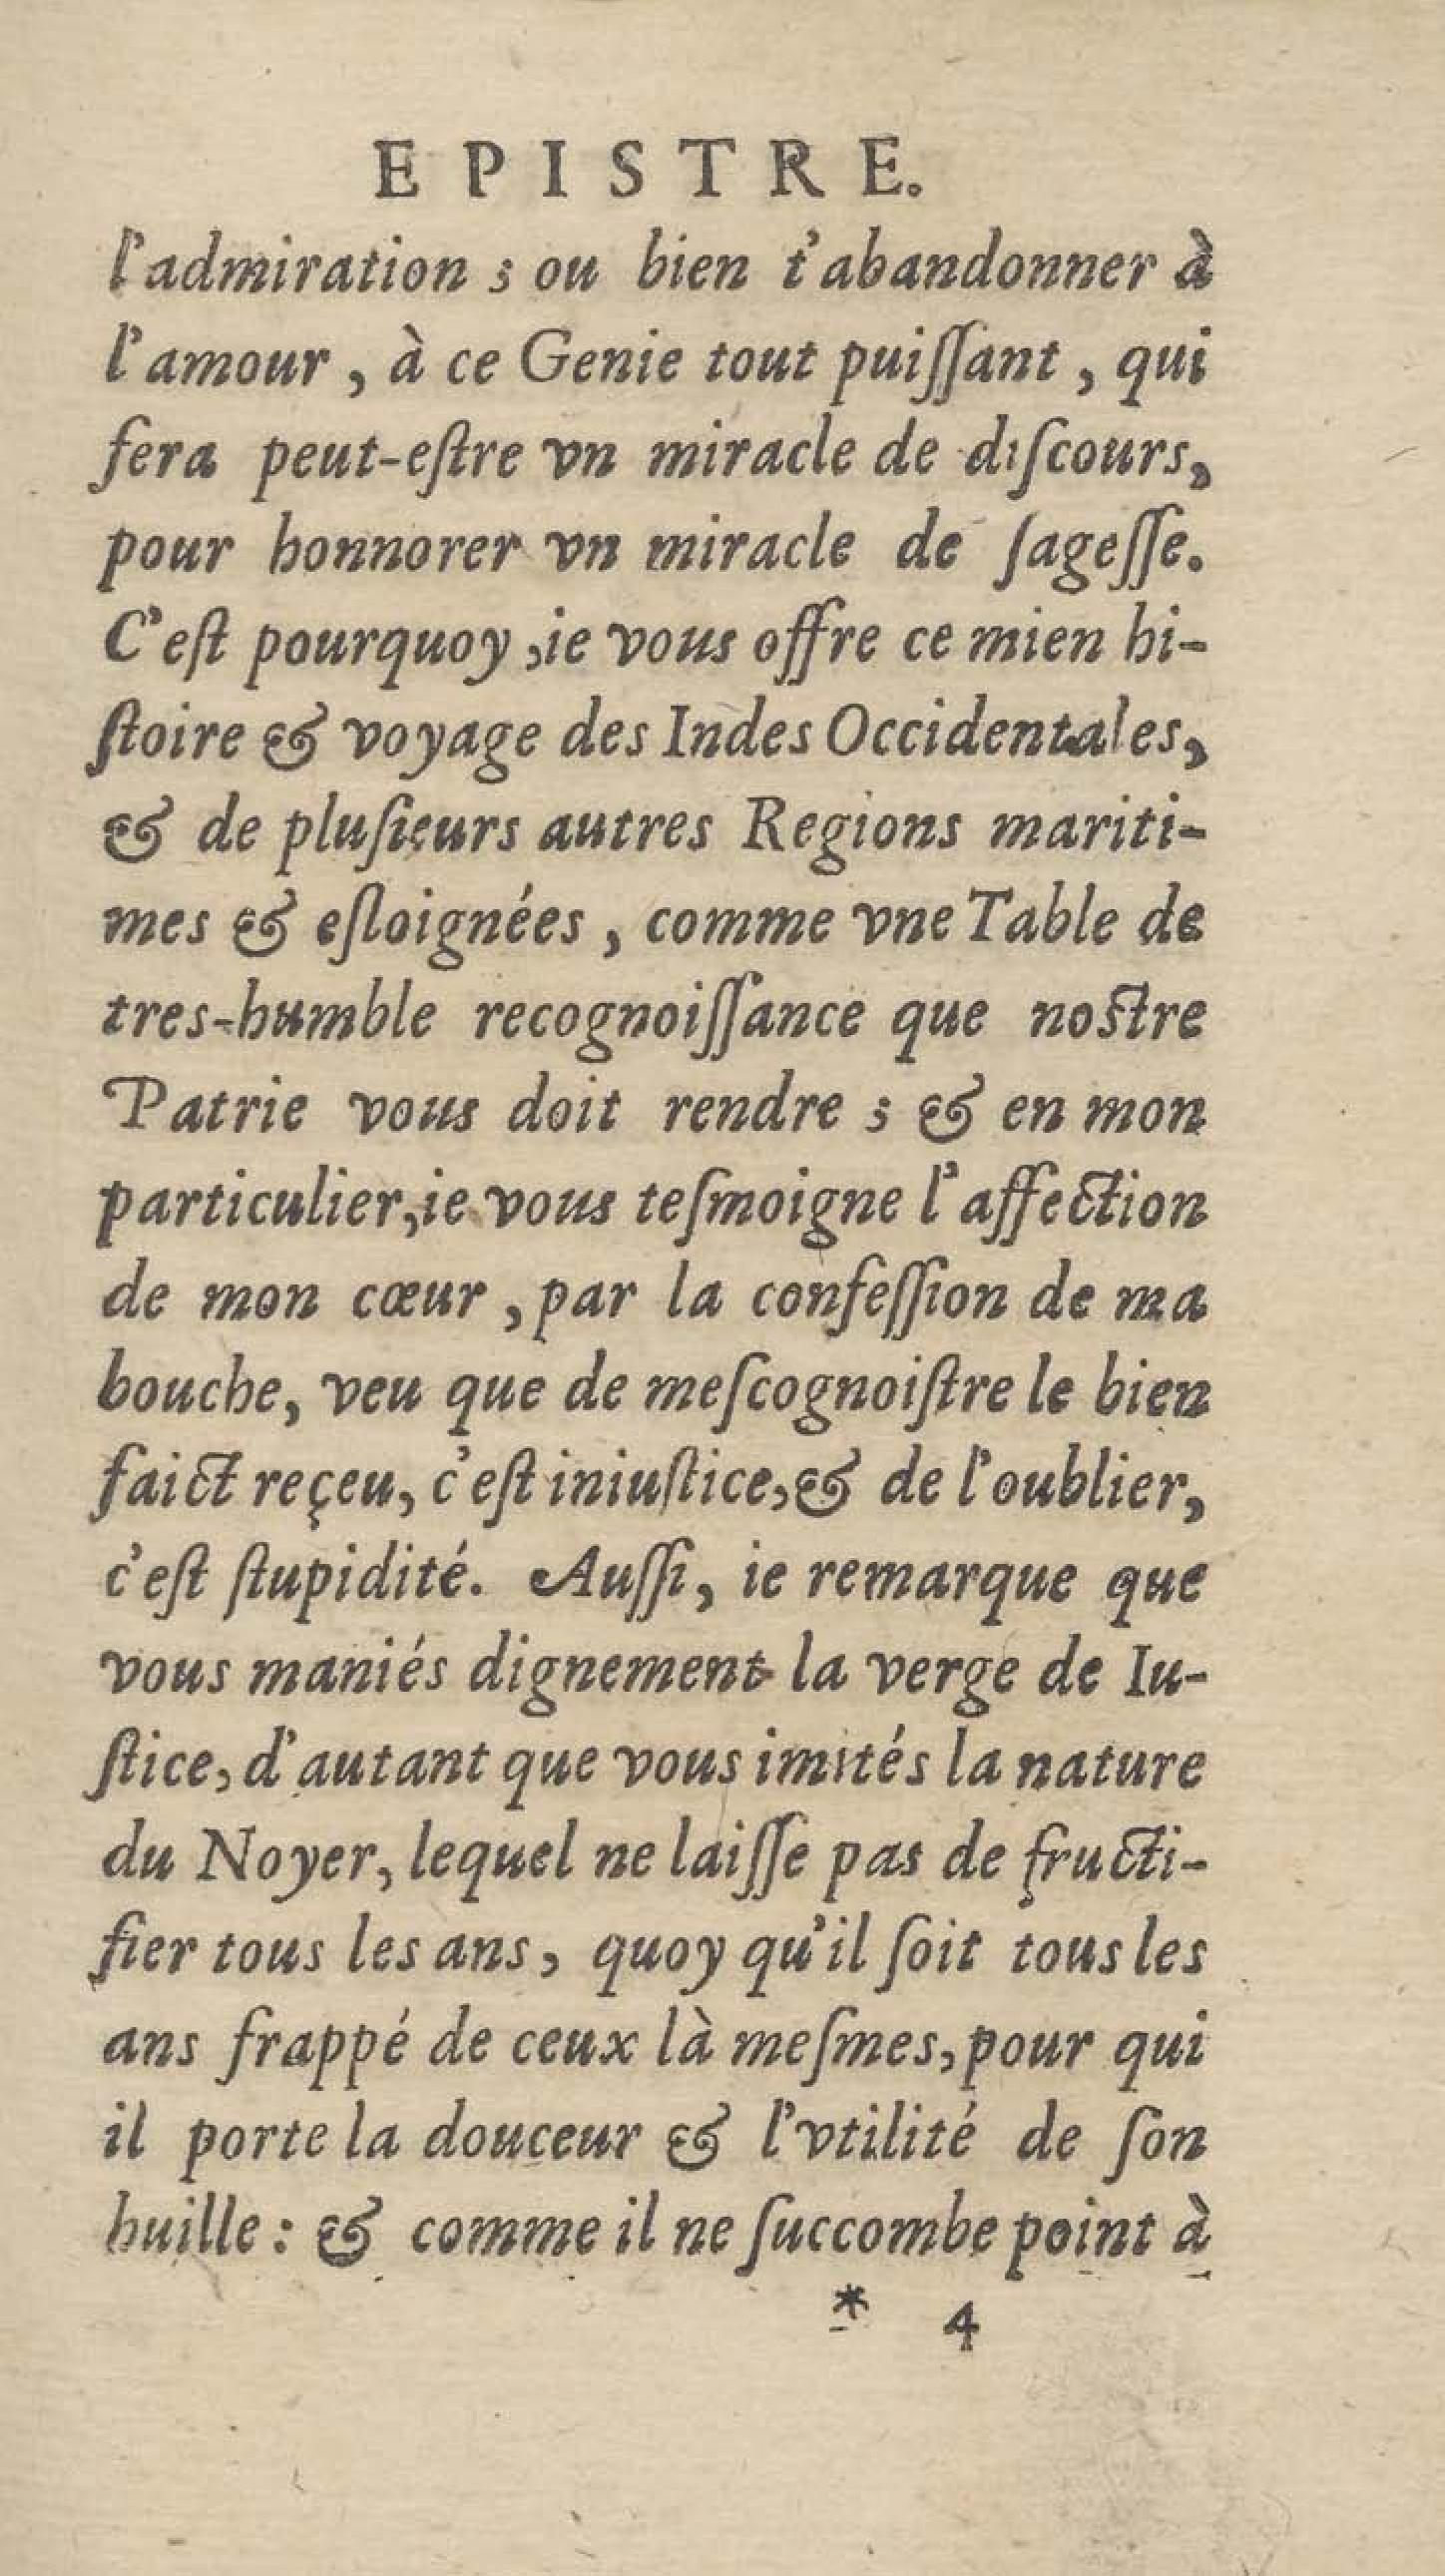 EPISTRE.
l'admiration ; ou bien t'abandonner à
l'amour, à ce Genie tout puiſſant, qui
fera peut-eſtre vn miracle de diſcours,
pour honnorer vn miracle de ſageſſe.
C'eſt pourquoy, ie vous offre ce mien hi-
ſtoire & voyage des Indes Occidentales,
& de pluſieurs autres Regions mariti-
mes & eſloignées, comme vne Table de
tres-humble recognoiſſance que noſtre
Patrie vous doit rendre ; & en mon
particulier, ie vous teſmoigne l'affection
de mon cœur, par la confeſſion de ma
bouche, veu que de meſcognoiſtre le bien
faict reçeu, c'eſt iniuſtice, & de l'oublier,
c'eſt ſtupidité. Auſſi, ie remarque que
vous maniés dignement la verge de Iu-
ſtice, d'autant que vous imités la nature
du Noyer, lequel ne laiſſe pas de fructi-
fier tous les ans, quoy qu'il ſoit tous les
ans frappé de ceux là meſmes, pour qui
il porte la douceur & l'vtilité de ſon
huille : & comme il ne ſuccombe point à
* 4